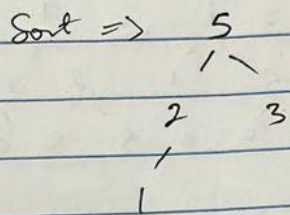 Sort => 5
2 3
1